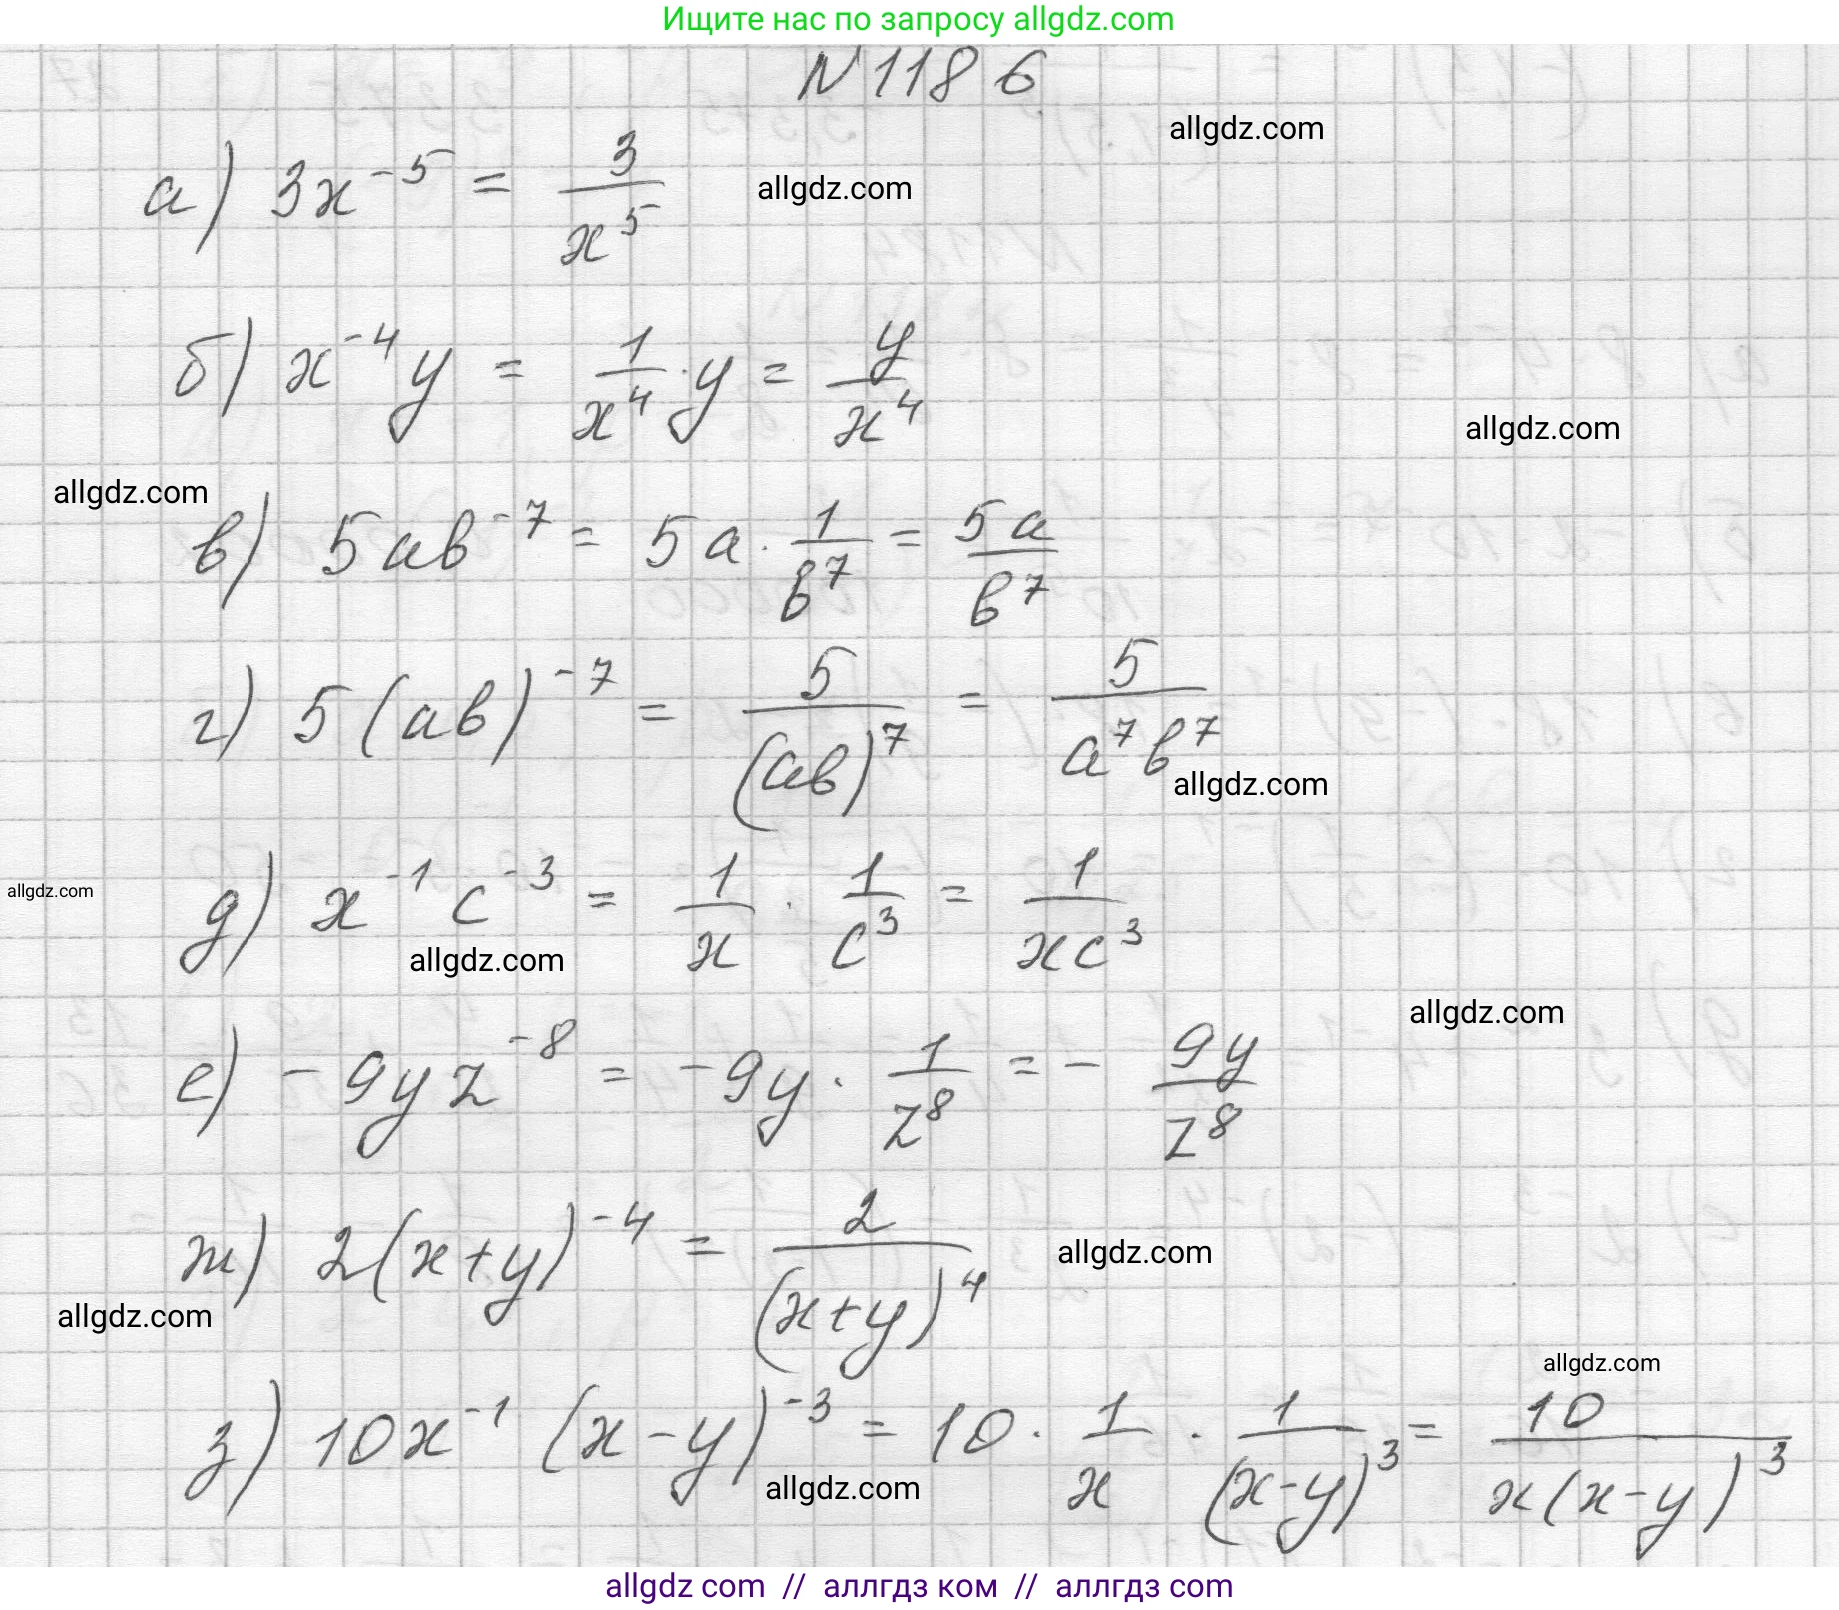 Ищите нас по запросу allgdz.com
N 1186
allgdz.com
а) 3x⁻⁵ = 3/x⁵
allgdz.com
б) x⁻⁴y = 1/x⁴ · y = y/x⁴
allgdz.com
allgdz.com
в) 5ab⁻⁷ = 5a · 1/b⁷ = 5a/b⁷
г) 5(ab)⁻⁷ = 5/(ab)⁷ = 5/a⁷b⁷
allgdz.com
allgdz.com
д) x⁻¹c⁻³ = 1/x · 1/c³ = 1/xc³
allgdz.com
allgdz.com
е) -9yz⁻⁸ = -9y · 1/z⁸ = - 9y/z⁸
ж) 2(x+y)⁻⁴ = 2/(x+y)⁴
allgdz.com
allgdz.com
allgdz.com
з) 10x⁻¹(x-y)⁻³ = 10 · 1/x · 1/(x-y)³ = 10/x(x-y)³
allgdz.com
allgdz com // аллгдз ком // аллгдз com